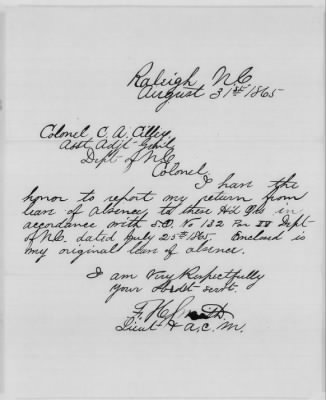 Raleigh N.C.
August 31st 1865
Colonel C. A. Cilley
Asst Adjt Genl,
Dept of N.C.
Colonel
I have the
honor to report my return from
leave of absence, to these Hd Qrs in
accordance with S.O. No 132 Par IV Dept
of N.C. dated July 25th 1865. Enclosed is
my original leave of absence.
I am Very Respectfully
your Obdt servt.
Smith
Lieut & A.C.M.